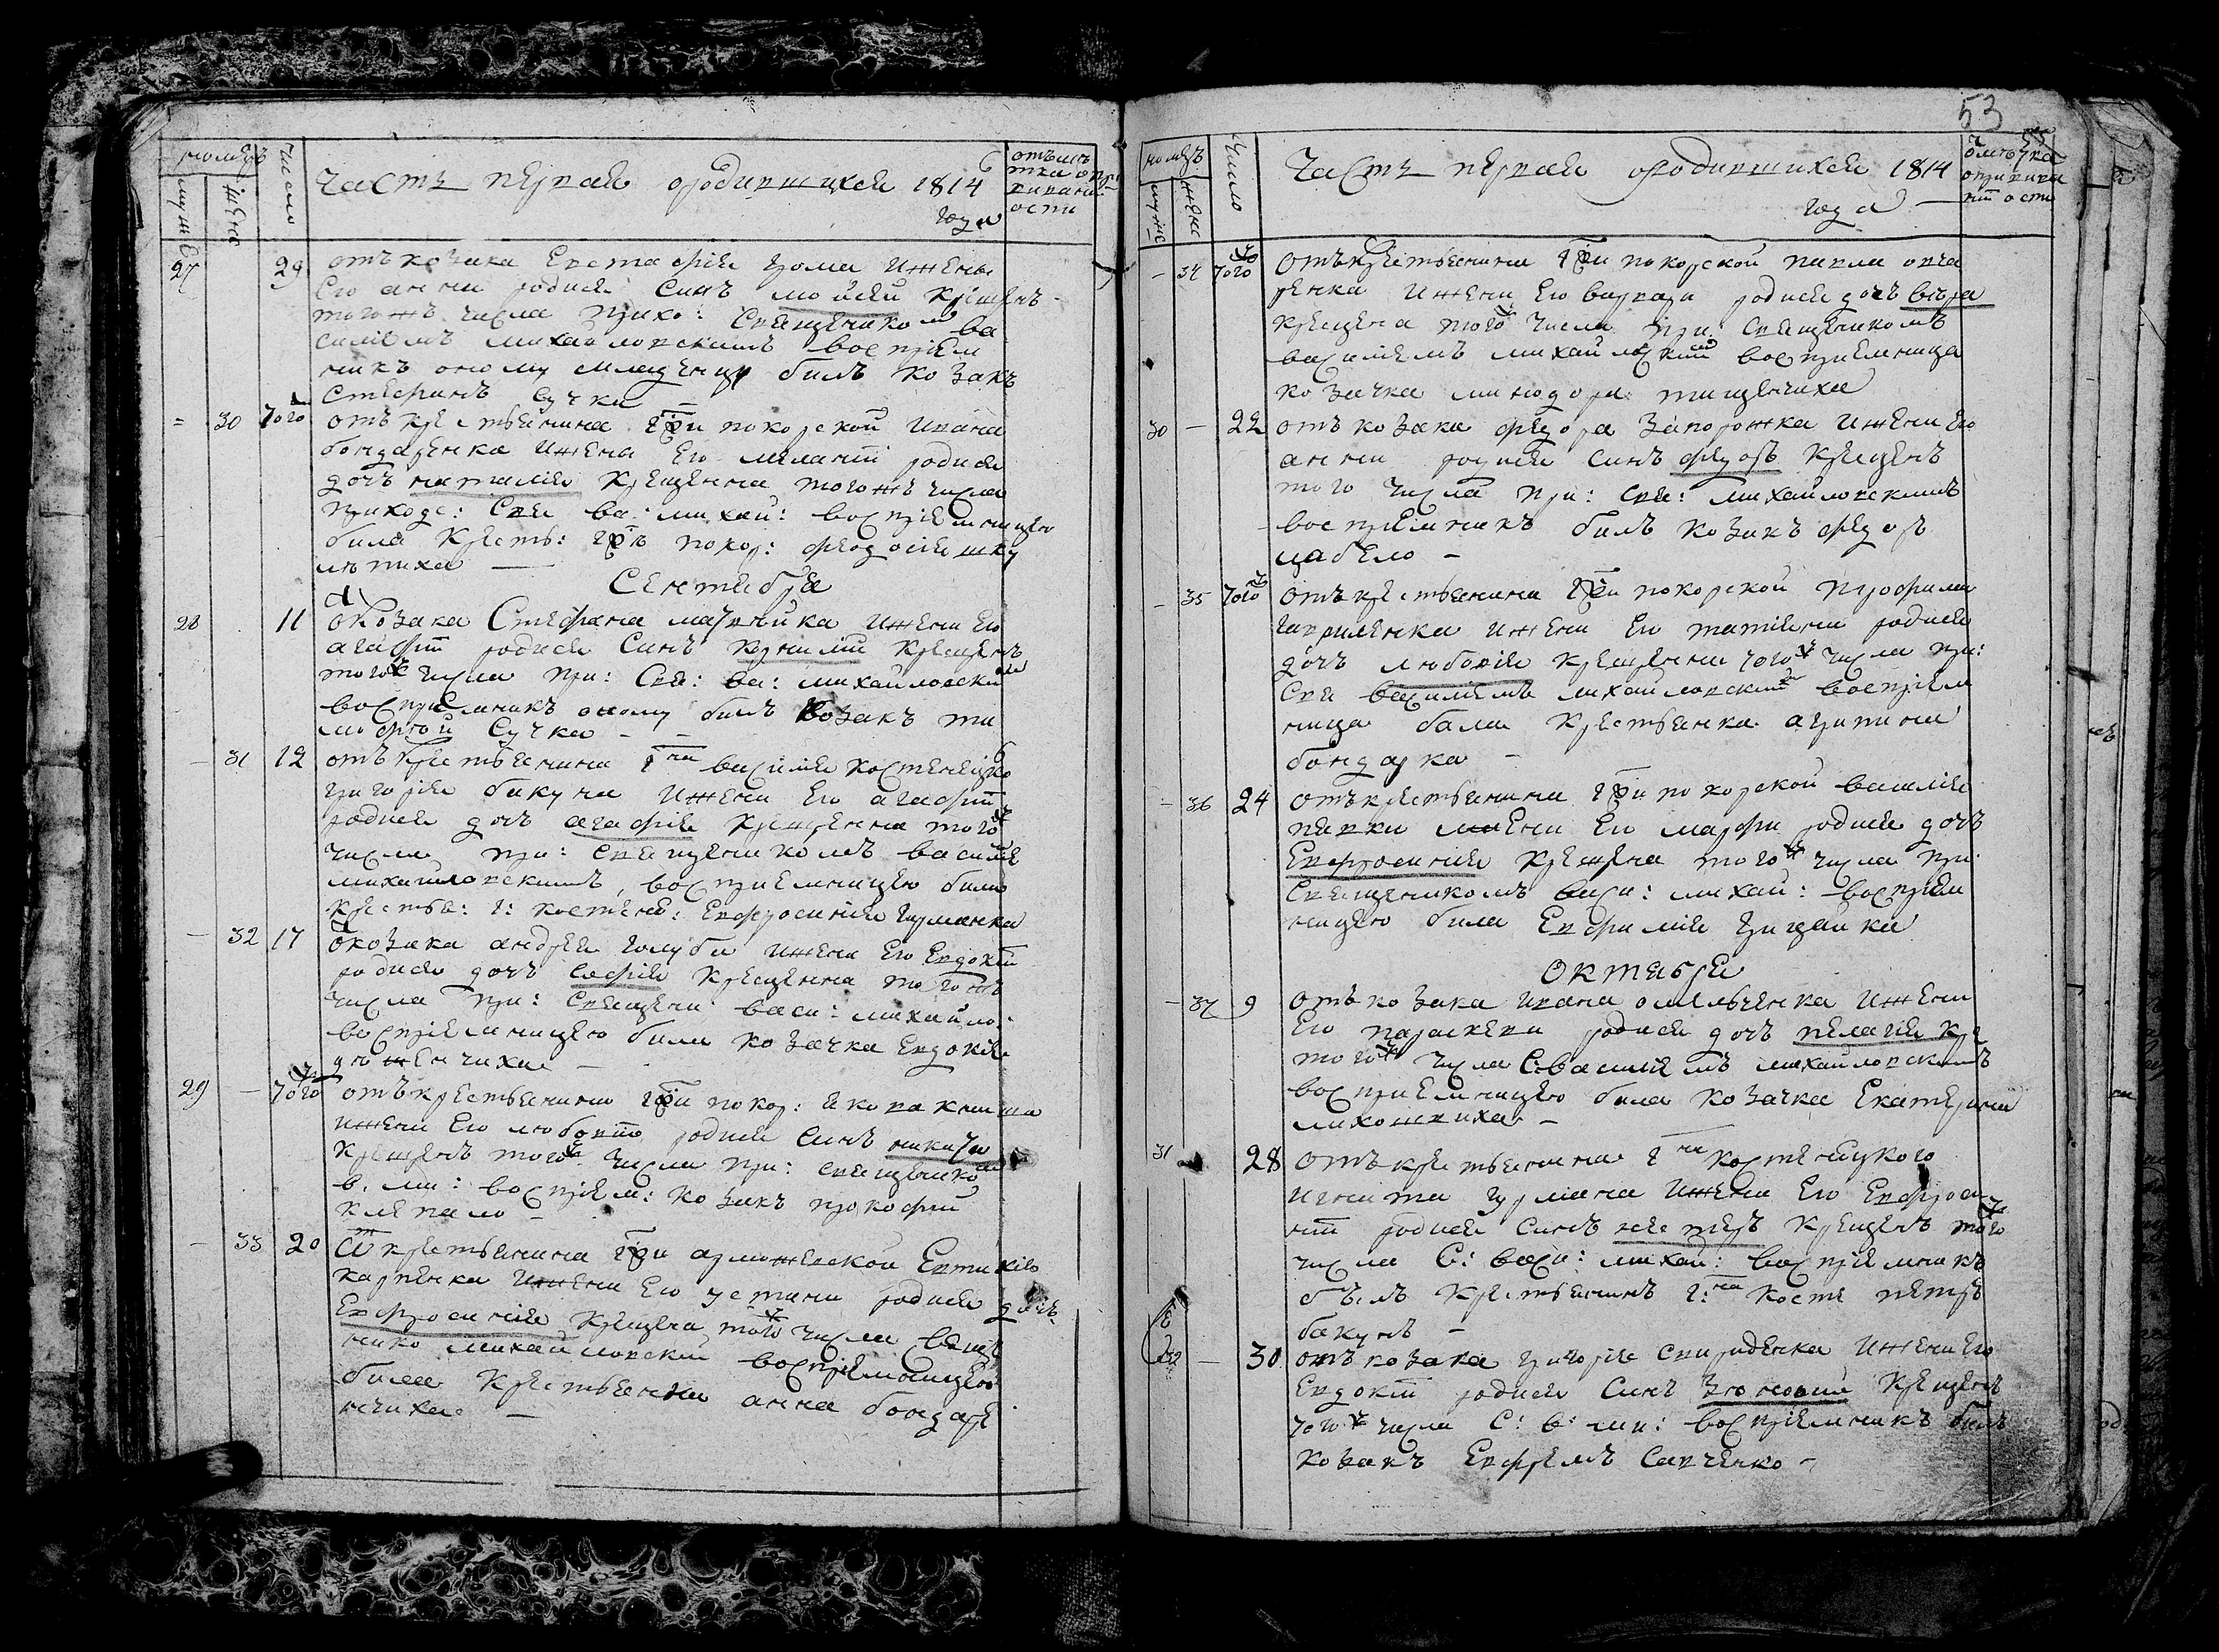 номеръ
число
отъмѣ
тка о при
вивани
ости
муже
жена
Часть первая о родившихся 1814
года
27 29 отъ козака Евстафія Хома и жены
его анни родися синъ мойсей крещенъ
тогожъ числа прихо: священиком ва
силіемъ михайловскимъ воспріем
никъ оному младенцу билъ козакъ
стефанъ Сучка
= 30 того отъ крестьянина покорской Ивана
бондаренка и жени его меланіи родися
дочъ наталія крещенна тогожъ числа
приход: Свя ва: михай: воспріемницею
била кресть: покор: феодосія шку
лѣтиха —
Сентября
28 11 о козака Стефана марчийка и жени его
агафіи родися синъ корнилій крещенъ
тогож числа при: Свя: ва: михайловским
воспріемникъ оному билъ козакъ ти
мофей Сучка -
- 31 12 отъ крестьянина г на василія костенецко
григорія бакуна и жени его агафіи
родися дочъ агафія крещенна тогож
числа при: священикомъ василіе
михайловскимъ, воспріемницею била
кресть: г: костене: Евфросинія гурманка
- 32 17 о козака андрея голуби и жени его Евдокіи
родися дочъ софія крещенна тогожъ
числа при: священи васи: михайло:
воспріемницею била козачка Евдокія
дюженчиха —
29 — тогож отъ крестьянина покор: якова книша
и жени его любови родися синъ никита
крещенъ тогож числа при: священико
в. ми: воспріем: козакъ прокофій
клепало -
- 33 20 Ѿ крестьянина армошевской Евтихія
карпенка и жени его устини родися дочъ
Евфросинія крещена тогож числа Свяще
нико михайловскій воспріемницею
била крестьянка анна бондаре
нчиха —
53
номеръ
число
отмѣтка
о привива
ніи ости
муже
жене
Часть первая о родившихся 1814
года —
- 34 тогож Отъ крестьянина покорской павла овча
ренка и жени его варвари родися дочъ вѣра
крещена тогож числа при: священикомъ
василіемъ михайловским воспріемница
козачка минодора тищенчиха
30 — 22 отъ козака федора запорожка и жени его
анни родися синъ федоръ крещенъ
того числа при: свя: михайловскимъ
воспріемникъ билъ козакъ федоръ
цабело -
- 35 тогож отъ крестьянина покорской трофима
гавриленка и жени его татіани родися
дочъ любовія крещенна тогож числа при:
Свя василіемъ михайловским воспріем
ница била крестьянка агрипина
бондарка -
- 36 24 отъ крестьянина покорской василія
пявки и жени его марфи родися дочъ
Евфросинія крещена тогож числа при.
Священикомъ васи: михай: воспріем
ницею била Евфимія грицайка
Октября
- 37 9 отъ козака ивана омельченка и жени
его параскеви родися дочъ пелагія кре
тогож числа С василіемъ михайловскимъ
воспріемницею била козачка Екатерина
лихошвиха -
31 28 отъ крестьянина г на костенецкого
игната гурмана и жени его Евфроси
ніи родися синъ нестеръ крещенъ тогож
числа С: васи: михай: воспріемникъ
былъ крестьянинъ г: на косте петръ
бакунъ -
32 — 30. отъ козака григорія спириденка и жени его
Евдокіи родися синъ зѣновий крещенъ
тогож числа С: в: ми: воспріемникъ билъ
козакъ Ефремъ Савченко -